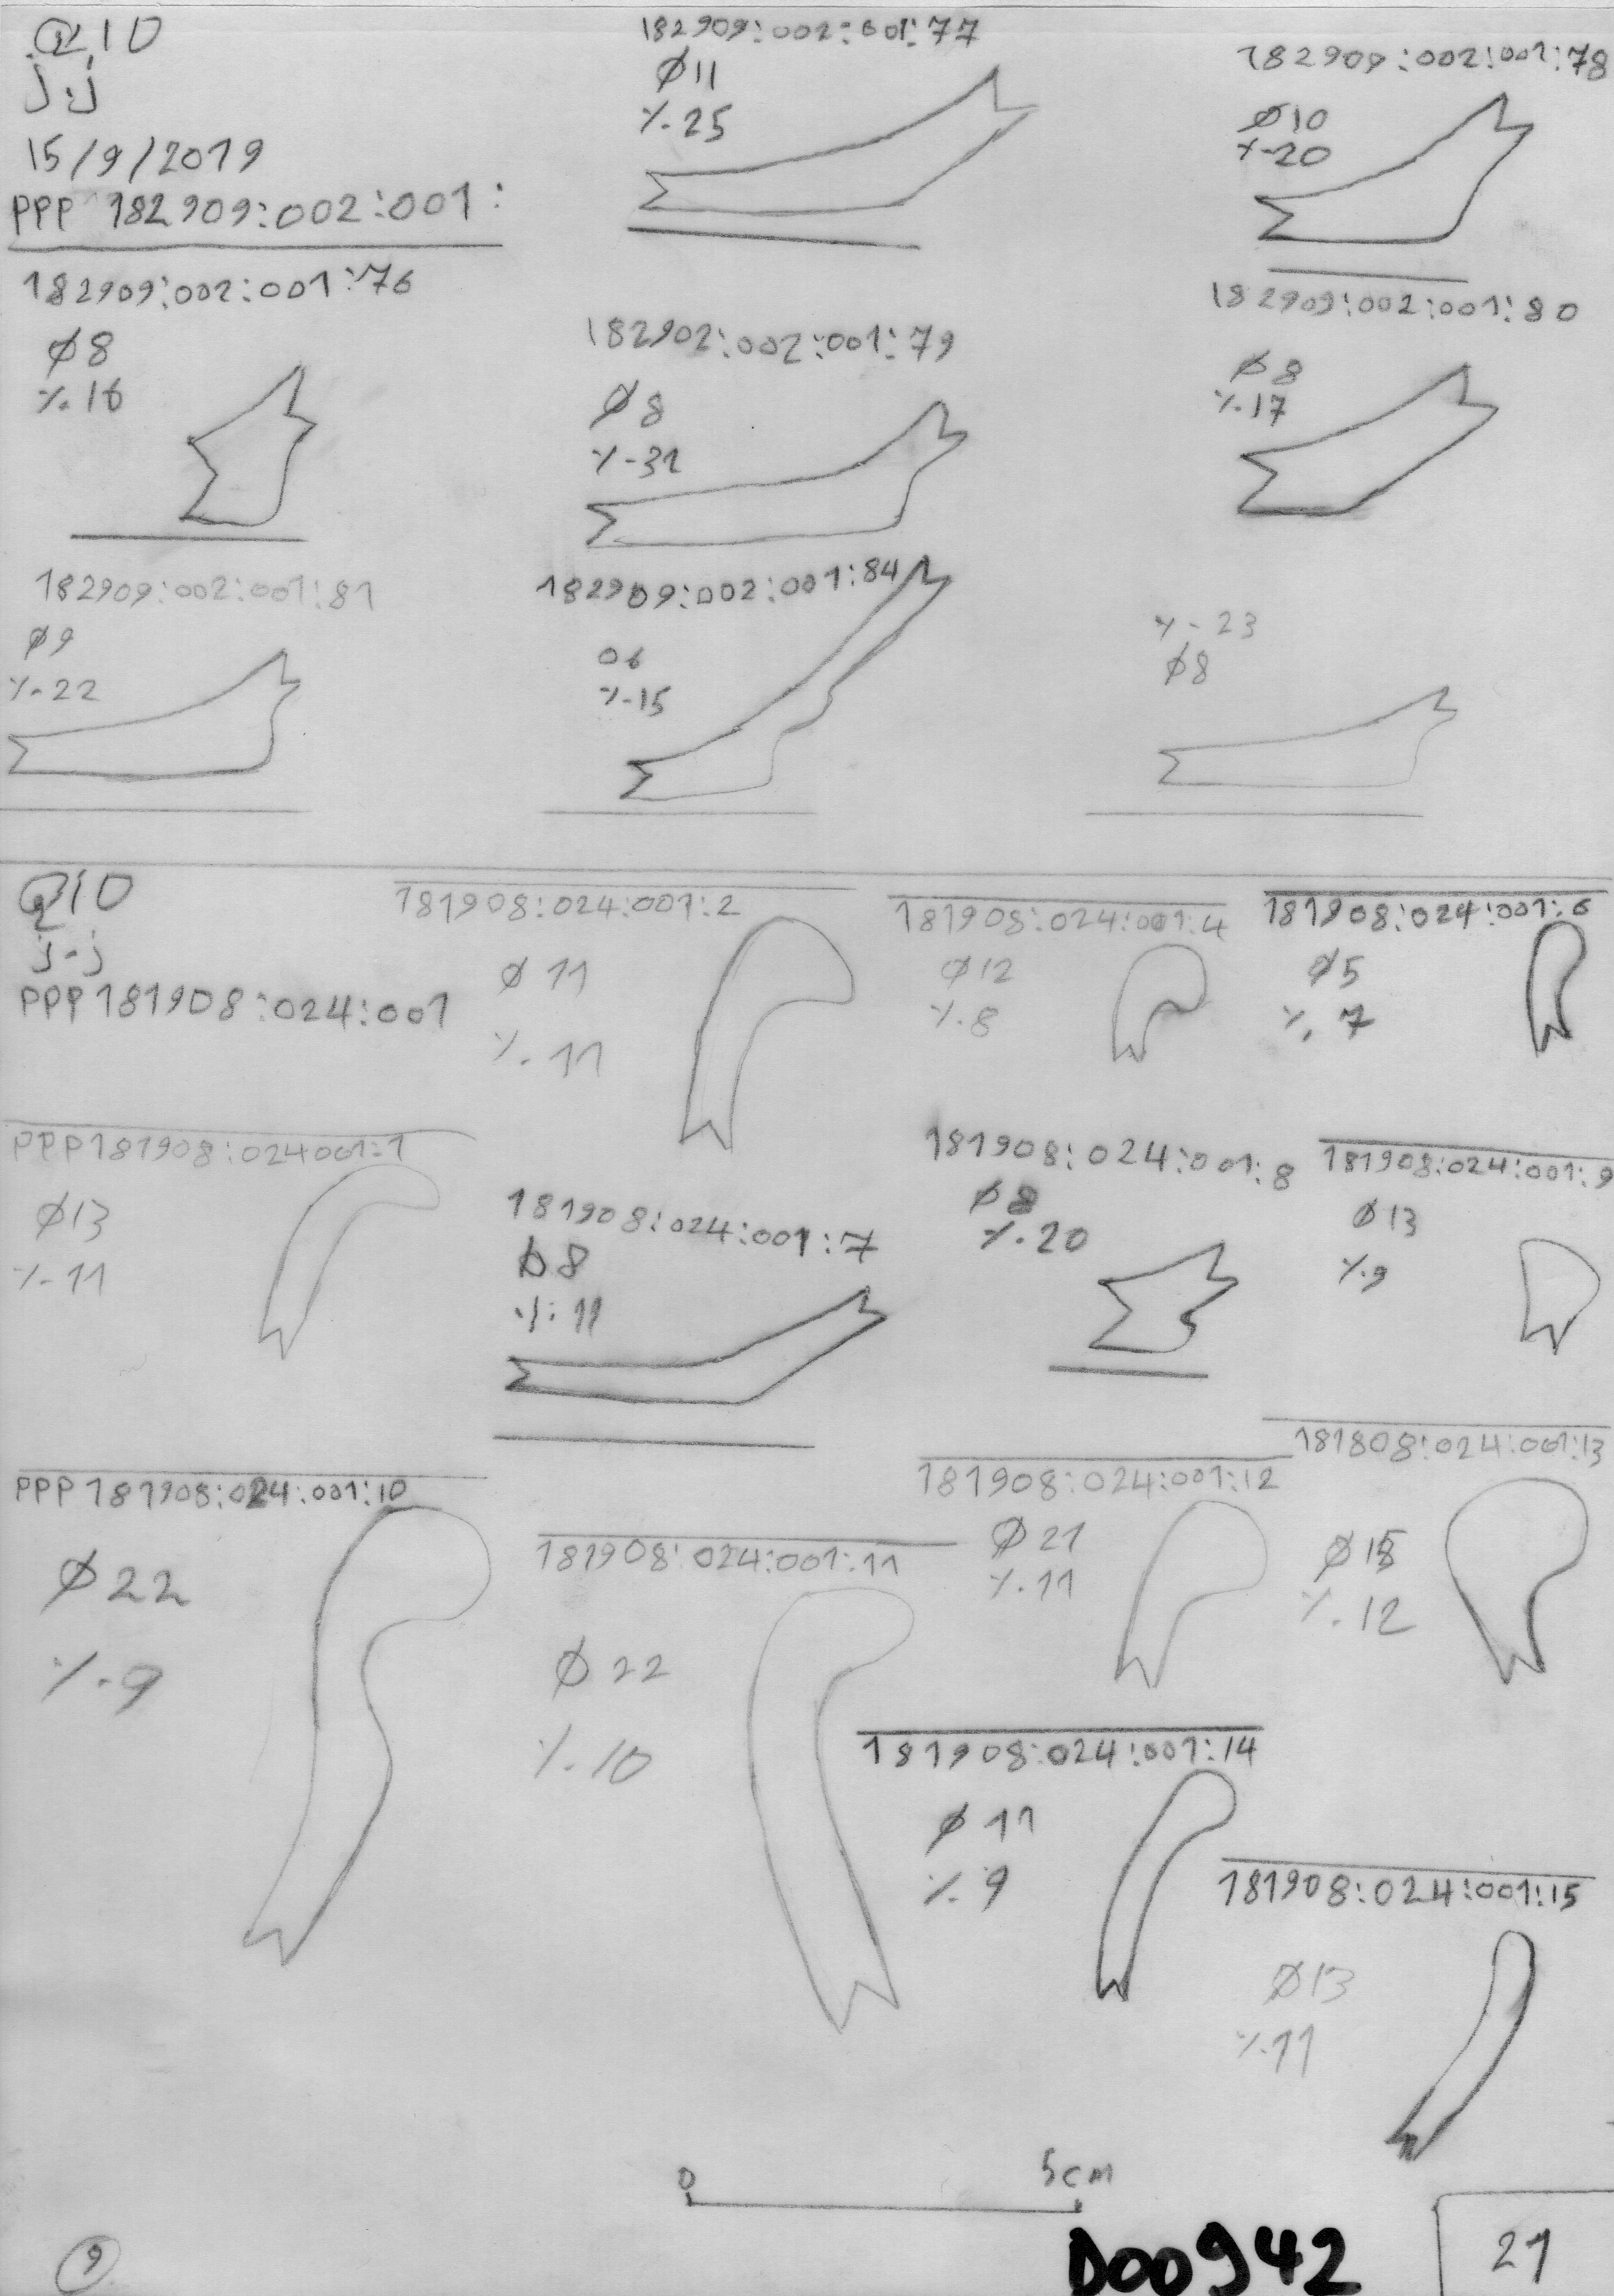 Q10
j.j
15/9/2019
PPP 182909:002:001:
182909:002:001:77
Ø11
%.25
182909:002:001:78
Ø10
%-20
182909:002:001:76
Ø8
%.16
182902:002:001:79
Ø8
%-31
182909:002:001:80
Ø8
%.17
182909:002:001:81
Ø9
%.22
182909:002:001:84
%-15
%-23
Ø8
Q10
j-j
PPP181908:024:001
181908:024:001:2
Ø11
%.11
181908:024:001:4
Ø12
%.8
181908:024:001:6
Ø5
%.7
PPP181908:024001:1
Ø13
%-11
181908:024:001:7
Ø8
%.11
181908:024:001:8
Ø8
%.20
181908:024:001:9
Ø13
%.9
PPP181908:024:001:10
Ø22
%.9
181908:024:001:11
Ø22
%.10
181908:024:001:12
Ø21
%.11
181808:024:001:13
%.12
181908:024:001:14
Ø11
%.9
181908:024:001:15
Ø13
%.11
0 5cm
9
D00942
21